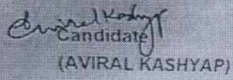 Aviral Kashyap
Candidate
(AVIRAL KASHYAP)